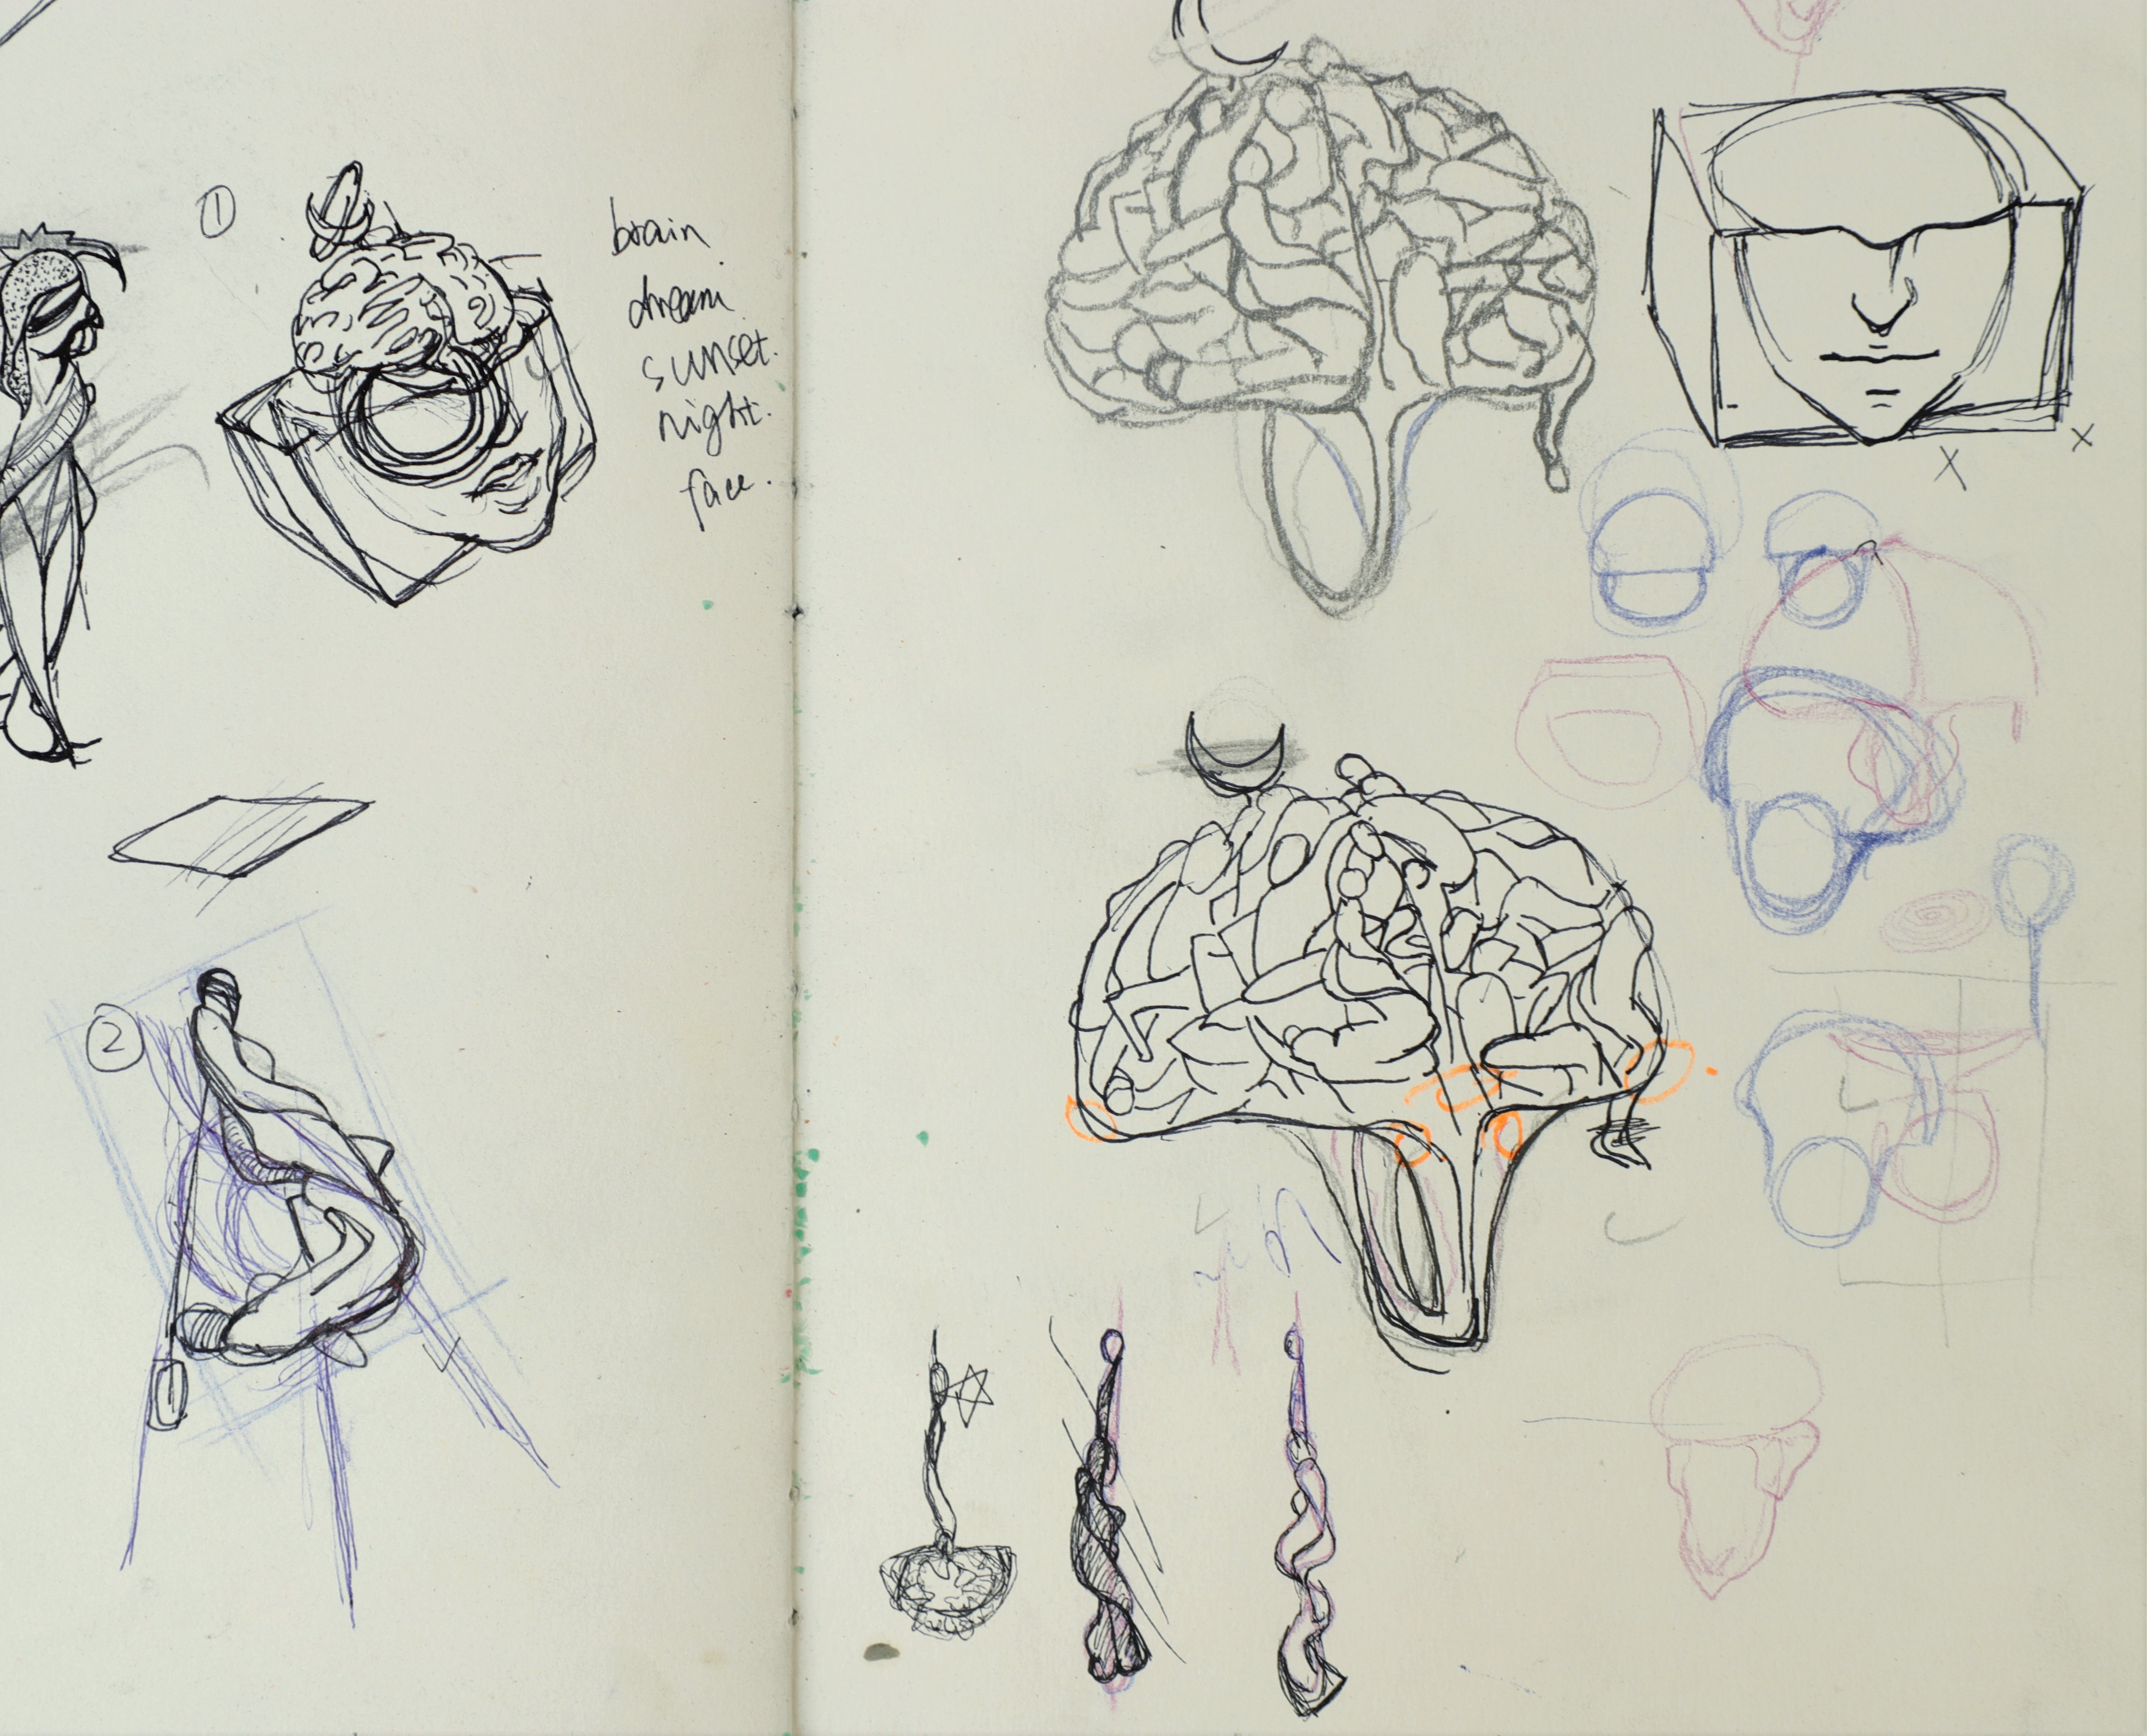 1
brain
dream
sunset.
night.
face.
2